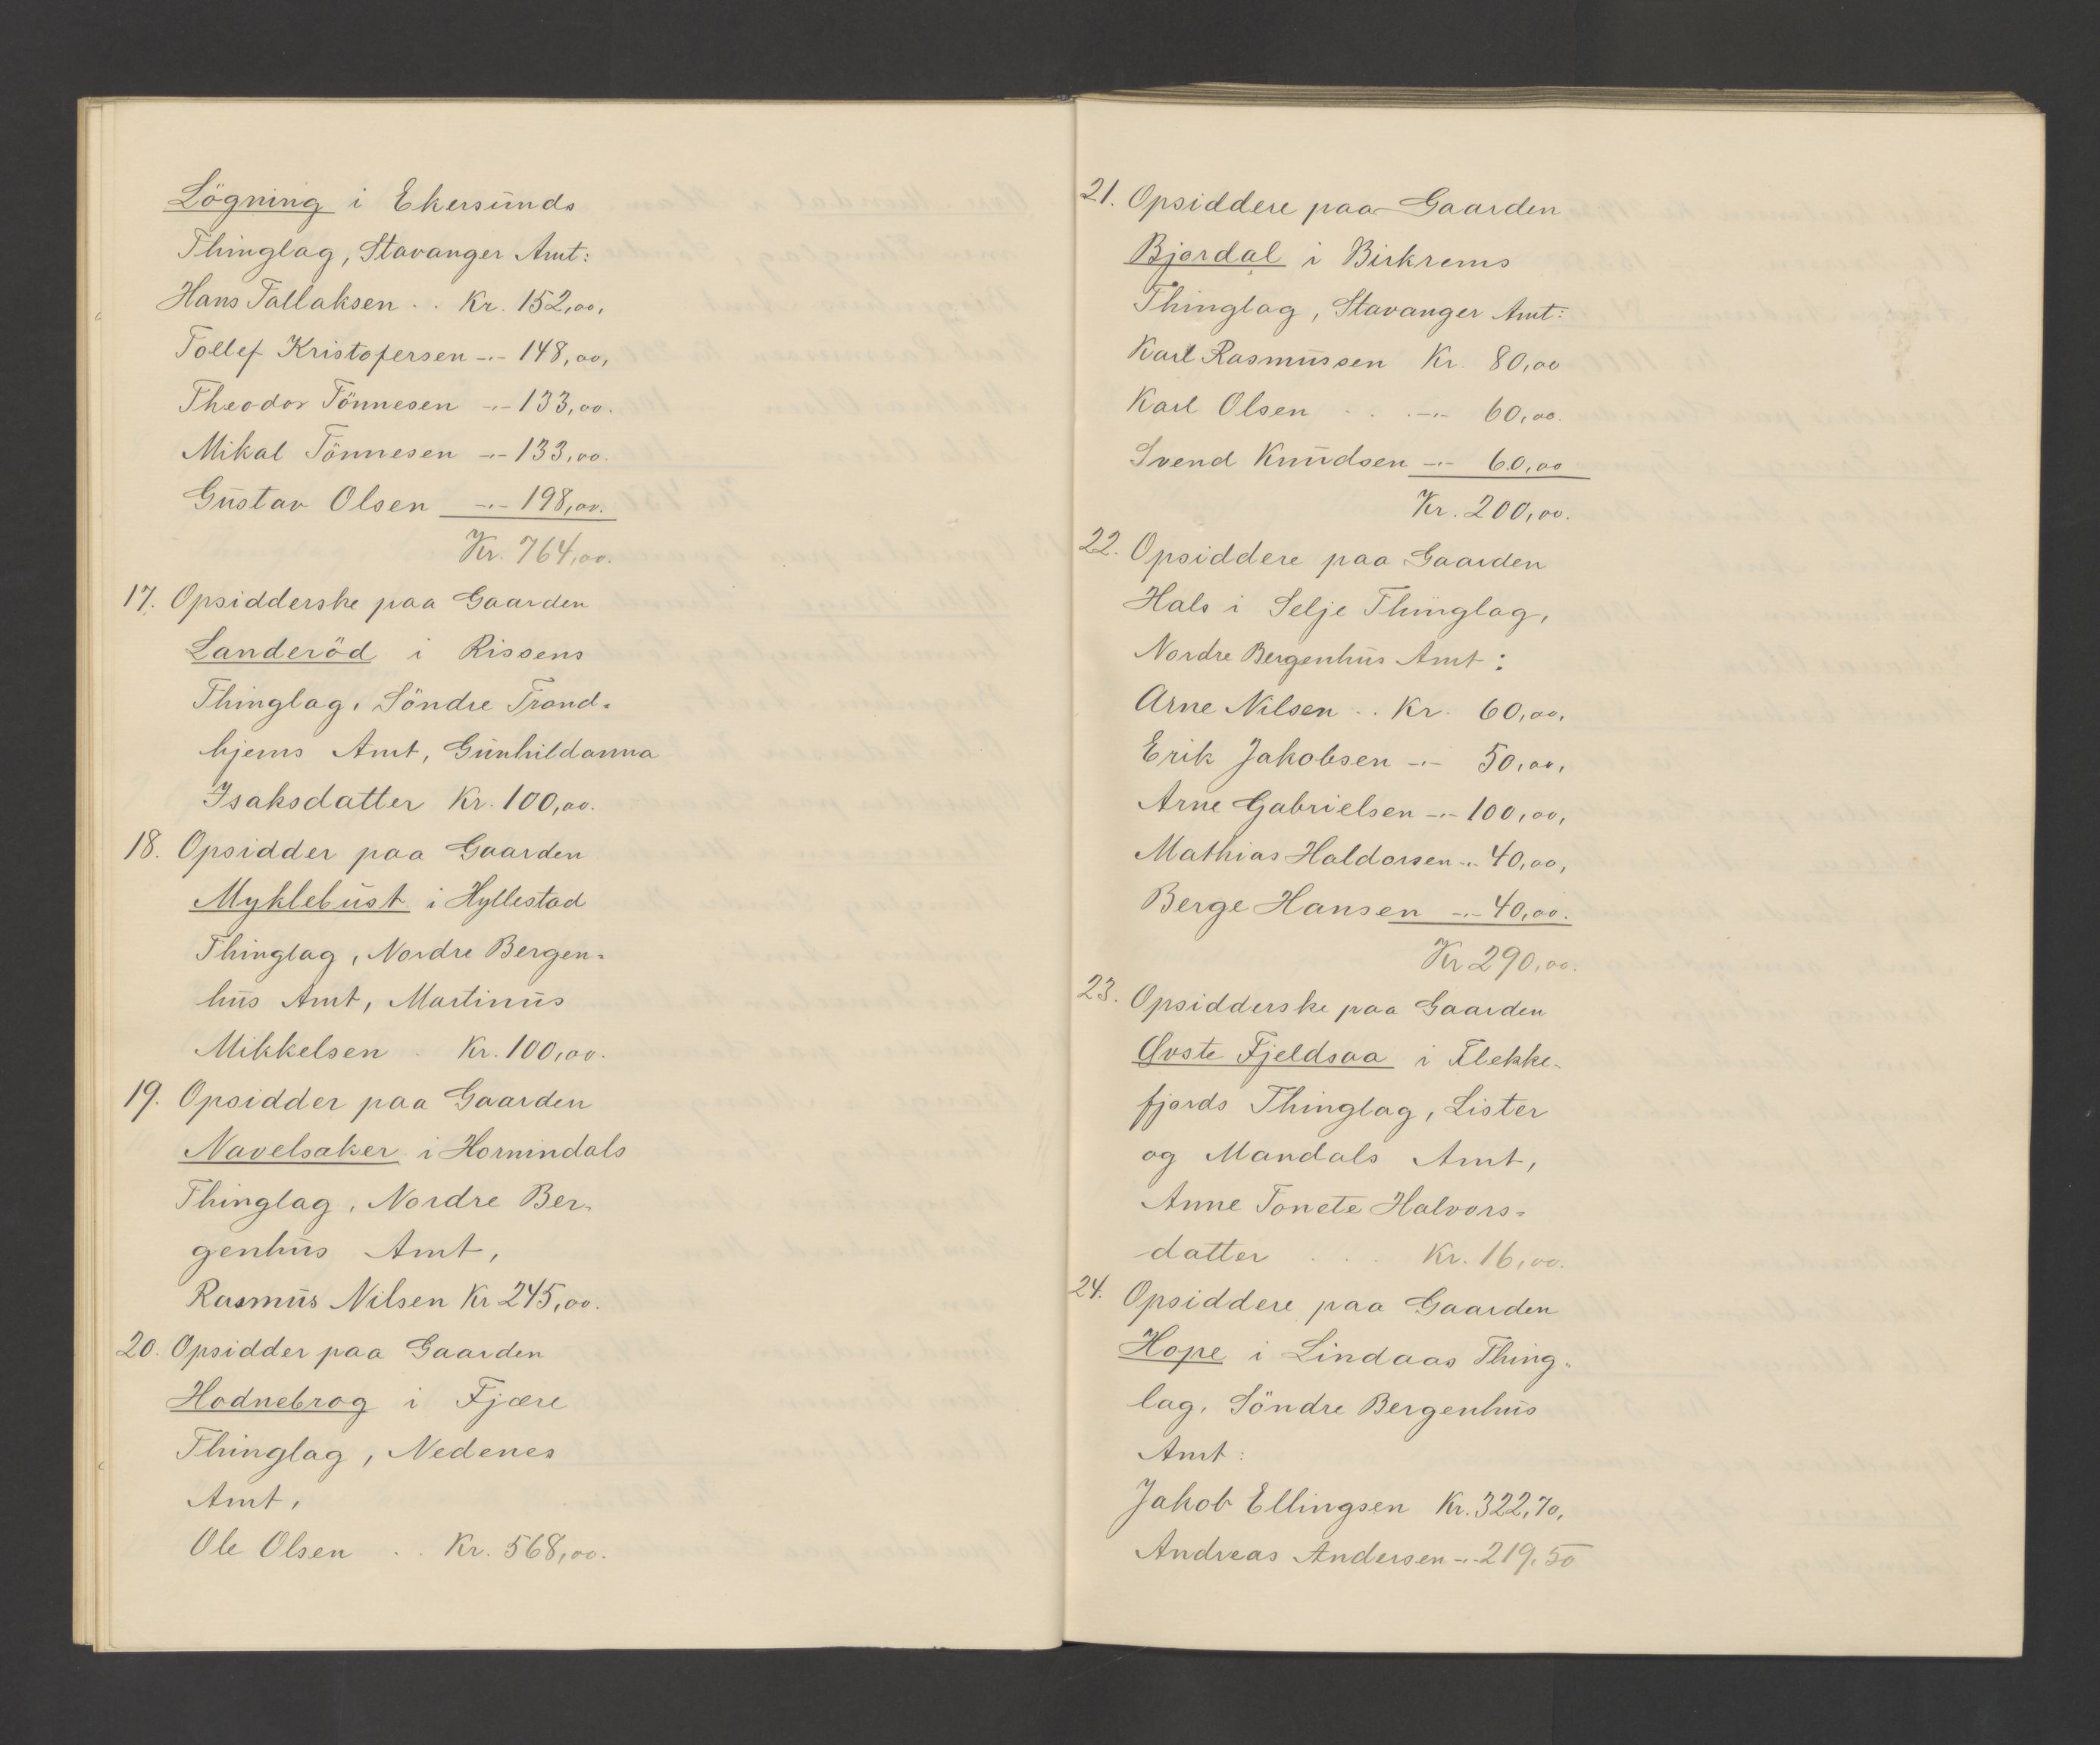 Lögning i Ekersunds
Thinglag, Stavanger Amt:
Hans Tallaksen . . Kr. 152,00,
Tollef Kristofersen -"- 148,00,
Theodor Tönnesen -"- 133,00.
Mikal Tönnesen -"- 133,00.
Gustav Olsen -"- 198,00.
Kr. 764,00.
17. Opsidderske paa Gaarden
Landeröd i Rissens
Thinglag, Söndre Trond-
hjems Amt, Gunhildanna
Isaksdatter Kr. 100,00.
18. Opsidder paa Gaarden
Myklebust i Hyllestad
Thinglag, Nordre Bergen-
hus Amt, Martinus
Mikkelsen . Kr. 100,00.
19. Opsidder paa Gaarden
Navelsaker i Hornindals
Thinglag, Nordre Ber-
genhus Amt,
Rasmus Nilsen Kr 245,00.
20. Opsidder paa Gaarden
Hodnebrog i Fjære
Thinglag, Nedenes
Amt,
Ole Olsen . . Kr. 568,00.
21. Opsiddere paa Gaarden
Bjordal i Birkrems
Thinglag, Stavanger Amt:
Karl Rasmussen Kr. 80,00
Karl Olsen . . -"- 60,00.
Svend Knudsen -"- 60,00
Kr. 200,00.
22. Opsiddere paa Gaarden
Hals i Selje Thinglag,
Nordre Bergenhus Amt:
Arne Nilsen . . Kr. 60,00,
Erik Jakobsen -"- 50,00,
Arne Gabrielsen -"- 100,00,
Mathias Haldorsen -"- 40,00,
Berge Hansen -"- 40,00.
Kr 290,00.
23. Opsidderske paa Gaarden
Øvste Fjeldsaa i Flekke-
fjords Thinglag, Lister
og Mandals Amt,
Anne Tonete Halvors-
datter . . . Kr. 16,00.
24. Opsiddere paa Gaarden
Hope i Lindaas Thing-
lag, Söndre Bergenhus
Amt:
Jakob Ellingsen Kr. 322,70,
Andreas Andersen -"- 219,50